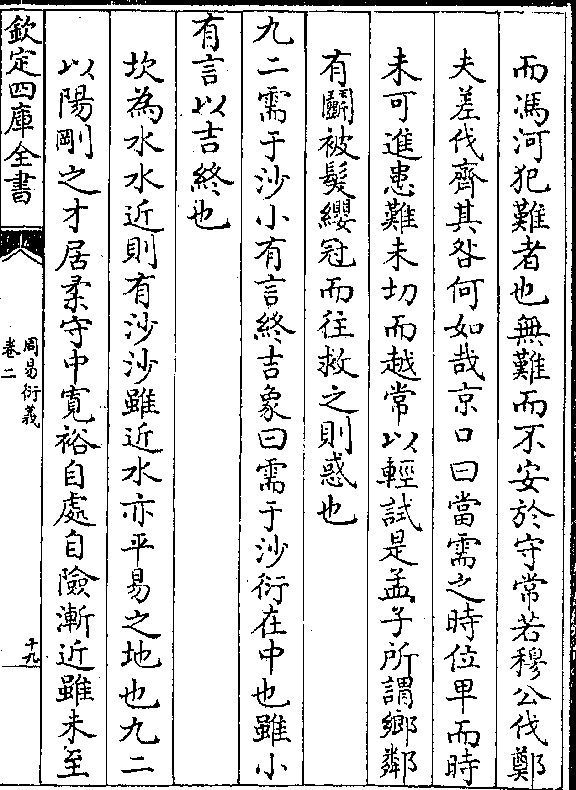 而馮河犯難者也無難而不安於守常若穆公伐鄭
夫差伐齊其咎何如哉京口曰當需之時位卑而時
未可進患難未切而越常以輕試是孟子所謂鄉鄰
有鬭被髮纓冠而往救之則惑也
九二需于沙小有言終吉象曰需于沙衍在中也雖小
有言以吉終也
坎為水水近則有沙沙雖近水亦平易之地也九二
以陽剛之才居柔守中寬裕自處自險漸近雖未至
欽定四庫全書
周易衍義
卷二
十九